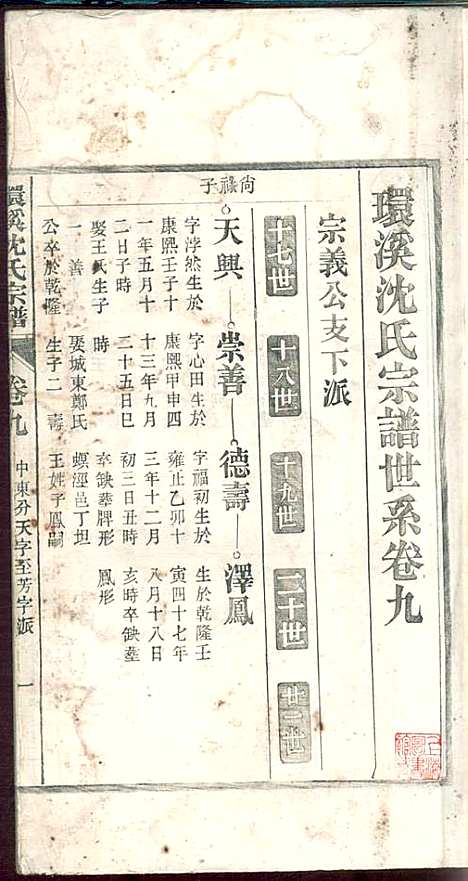 環溪沈氏宗譜世系卷九
宗義公支下派
十七世 十八世 十九世 二十世 廿一世
尙祿子
天興 崇善 德壽 澤鳳
字浡然生於 字心田生於 字福初生於 生於乾隆壬
康熙壬子十 康熙甲申四 雍正乙卯十 寅四十七年
一年五月十 十三年九月 三年十二月 八月十八日
二日子時 二十五日巳 初三日丑時 亥時卒缺塟
娶王氏生子 時 卒缺塟牌形 鳳形
一 善 娶城東鄭氏 螟涇邑丁坦
公卒於乾隆 生子二 壽 王姓子鳳嗣
環溪沈氏宗譜
卷九
中東分天字至芳字派
一